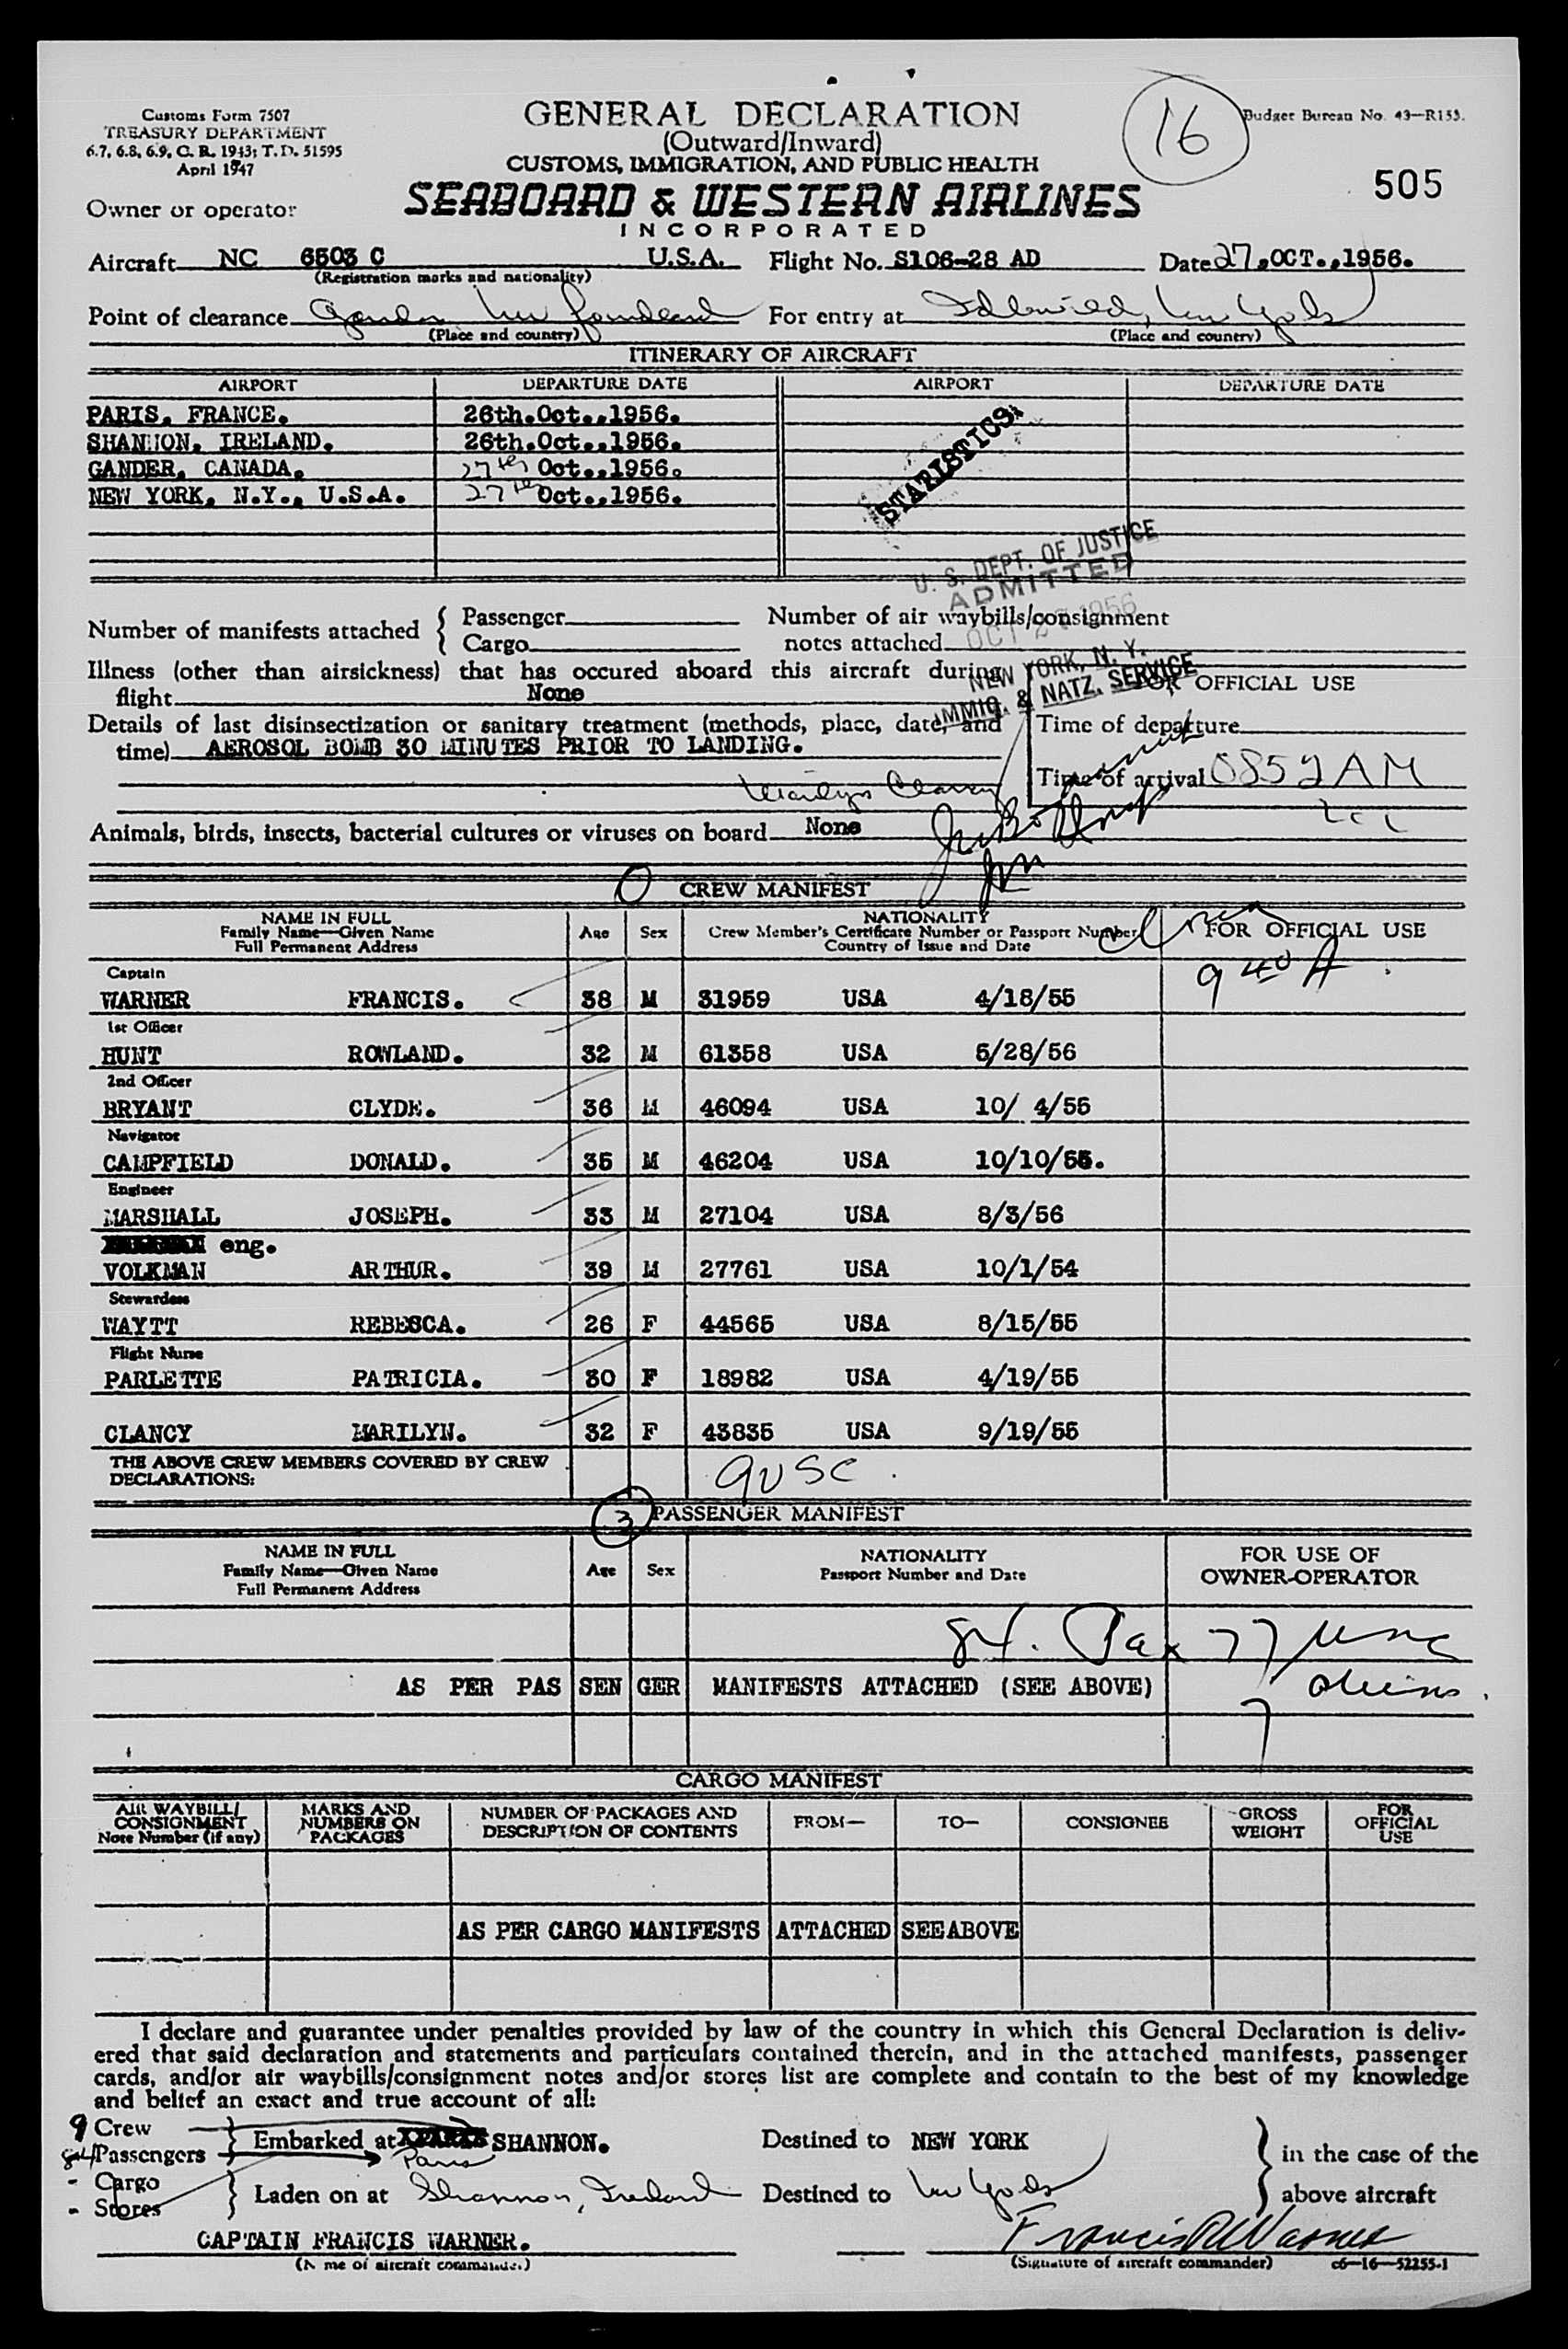 Customs Form 7507
TREASURY DEPARTMENT
6.7, 6.8, 6.9, C. R. 1943; T. D. 51595
April 1947
GENERAL DECLARATION
(Outward/Inward)
CUSTOMS, IMMIGRATION, AND PUBLIC HEALTH
16
Budget Bureau No. 43—R153.
505
Owner or operator
SEABOARD & WESTERN AIRLINES
INCORPORATED
Aircraft NC 6503 C U.S.A. Flight No. S106-28 AD Date 27,OCT.,1956.
(Registration marks and nationality)
Point of clearance Gander Newfoundland For entry at Idlewild, New York
(Place and country) (Place and country)
ITINERARY OF AIRCRAFT
AIRPORT DEPARTURE DATE AIRPORT DEPARTURE DATE
PARIS, FRANCE. 26th.Oct.,1956.
SHANNON, IRELAND. 26th.Oct.,1956.
GANDER, CANADA, 27th Oct.,1956.
NEW YORK, N.Y., U.S.A. 27th Oct.,1956.
STATISTICS
U. S. DEPT. OF JUSTICE
ADMITTED
OCT 27 1956
NEW YORK, N. Y.
IMMIG. & NATZ. SERVICE
Number of manifests attached { Passenger
Cargo
Number of air waybills/consignment
notes attached
Illness (other than airsickness) that has occured aboard this aircraft during
flight None
FOR OFFICIAL USE
Details of last disinsectization or sanitary treatment (methods, place, date, and
time) AEROSOL BOMB 30 MINUTES PRIOR TO LANDING.
Time of departure
Marilyn Clancy
Time of arrival 0852 AM
Animals, birds, insects, bacterial cultures or viruses on board None
CREW MANIFEST
NAME IN FULL
Family Name—Given Name
Full Permanent Address
Age Sex
NATIONALITY
Crew Member's Certificate Number or Passport Number
Country of Issue and Date
FOR OFFICIAL USE
940 A
Captain
WARNER FRANCIS. 38 M 31959 USA 4/18/55
1st Officer
HUNT ROWLAND. 32 M 61358 USA 5/28/56
2nd Officer
BRYANT CLYDE. 36 M 46094 USA 10/ 4/55
Navigator
CAMPFIELD DONALD. 35 M 46204 USA 10/10/55.
Engineer
MARSHALL JOSEPH. 33 M 27104 USA 8/3/56
eng.
VOLKMAN ARTHUR. 39 M 27761 USA 10/1/54
Stewardess
WAYTT REBESCA. 26 F 44565 USA 8/15/55
Flight Nurse
PARLETTE PATRICIA. 30 F 18982 USA 4/19/55
CLANCY MARILYN. 32 F 43835 USA 9/19/55
THE ABOVE CREW MEMBERS COVERED BY CREW
DECLARATIONS:
9 USC
3
PASSENGER MANIFEST
NAME IN FULL
Family Name—Given Name
Full Permanent Address
Age Sex
NATIONALITY
Passport Number and Date
FOR USE OF
OWNER-OPERATOR
84. Pax 77 USC
7 aliens.
AS PER PAS SEN GER MANIFESTS ATTACHED (SEE ABOVE)
CARGO MANIFEST
AIR WAYBILL/
CONSIGNMENT
Note Number (if any)
MARKS AND
NUMBERS ON
PACKAGES
NUMBER OF PACKAGES AND
DESCRIPTION OF CONTENTS
FROM— TO— CONSIGNEE
GROSS
WEIGHT
FOR
OFFICIAL
USE
AS PER CARGO MANIFESTS ATTACHED SEE ABOVE
I declare and guarantee under penalties provided by law of the country in which this General Declaration is deliv-
ered that said declaration and statements and particulars contained therein, and in the attached manifests, passenger
cards, and/or air waybills/consignment notes and/or stores list are complete and contain to the best of my knowledge
and belief an exact and true account of all:
9 Crew
84 Passengers } Embarked at SHANNON. Destined to NEW YORK
Paris
in the case of the
- Cargo
- Stores } Laden on at Shannon, Ireland Destined to New York above aircraft
CAPTAIN FRANCIS WARNER. Francis A Warner
(Name of aircraft commander) (Signature of aircraft commander) c6—16—52255-1